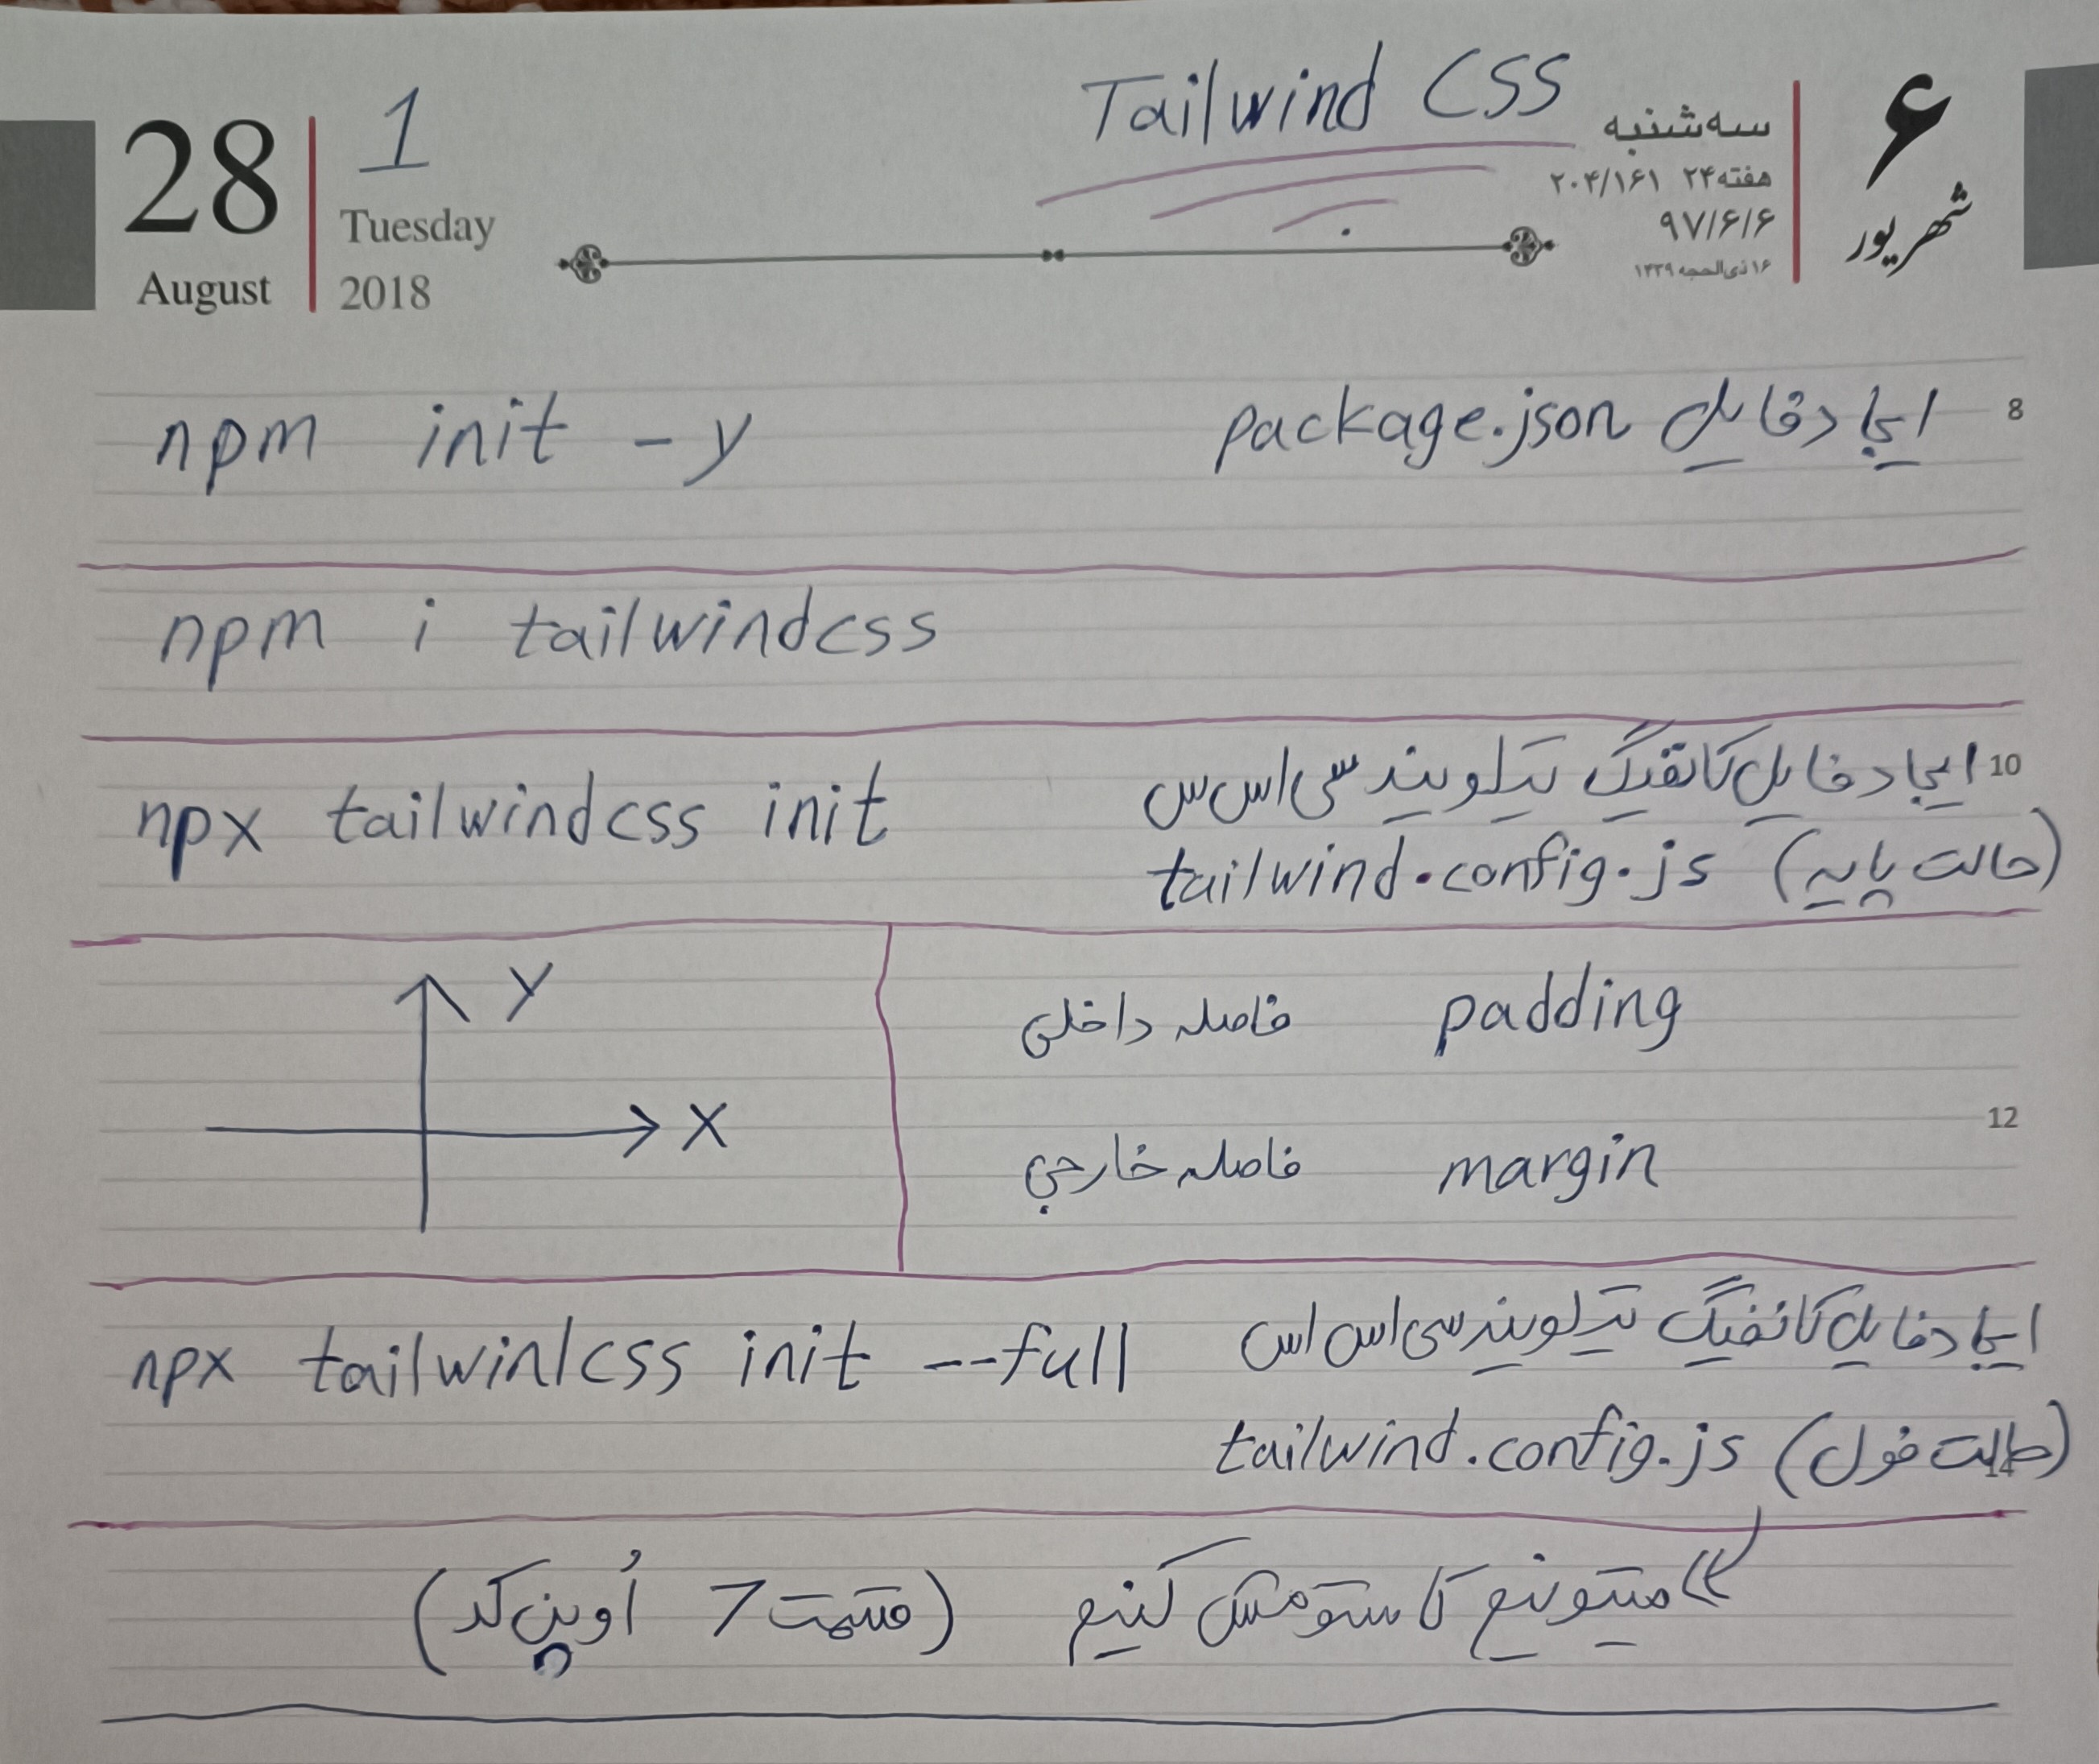 28
August
1
Tuesday
2018
Tailwind CSS
سه‌شنبه
هفته ۲۴ ۲۰۴/۱۶۱
۹۷/۶/۶
۱۶ ذی‌الحجه ۱۴۳۹
۶
شهریور
npm init -y
ایجاد فایل package.json
8
npm i tailwindcss
npx tailwindcss init
ایجاد فایل کانفیگ تیلویند سی اس س
10
(حالت پایه) tailwind.config.js
y
x
padding فاصله داخلی
12
margin فاصله خارجی
npx tailwinlcss init --full
ایجاد فایل کانفیگ تیلویند سی اس اس
(حالت فول) tailwind.config.js
14
میتونیم کاستومش کنیم (قسمت 7 اُوپن کد)